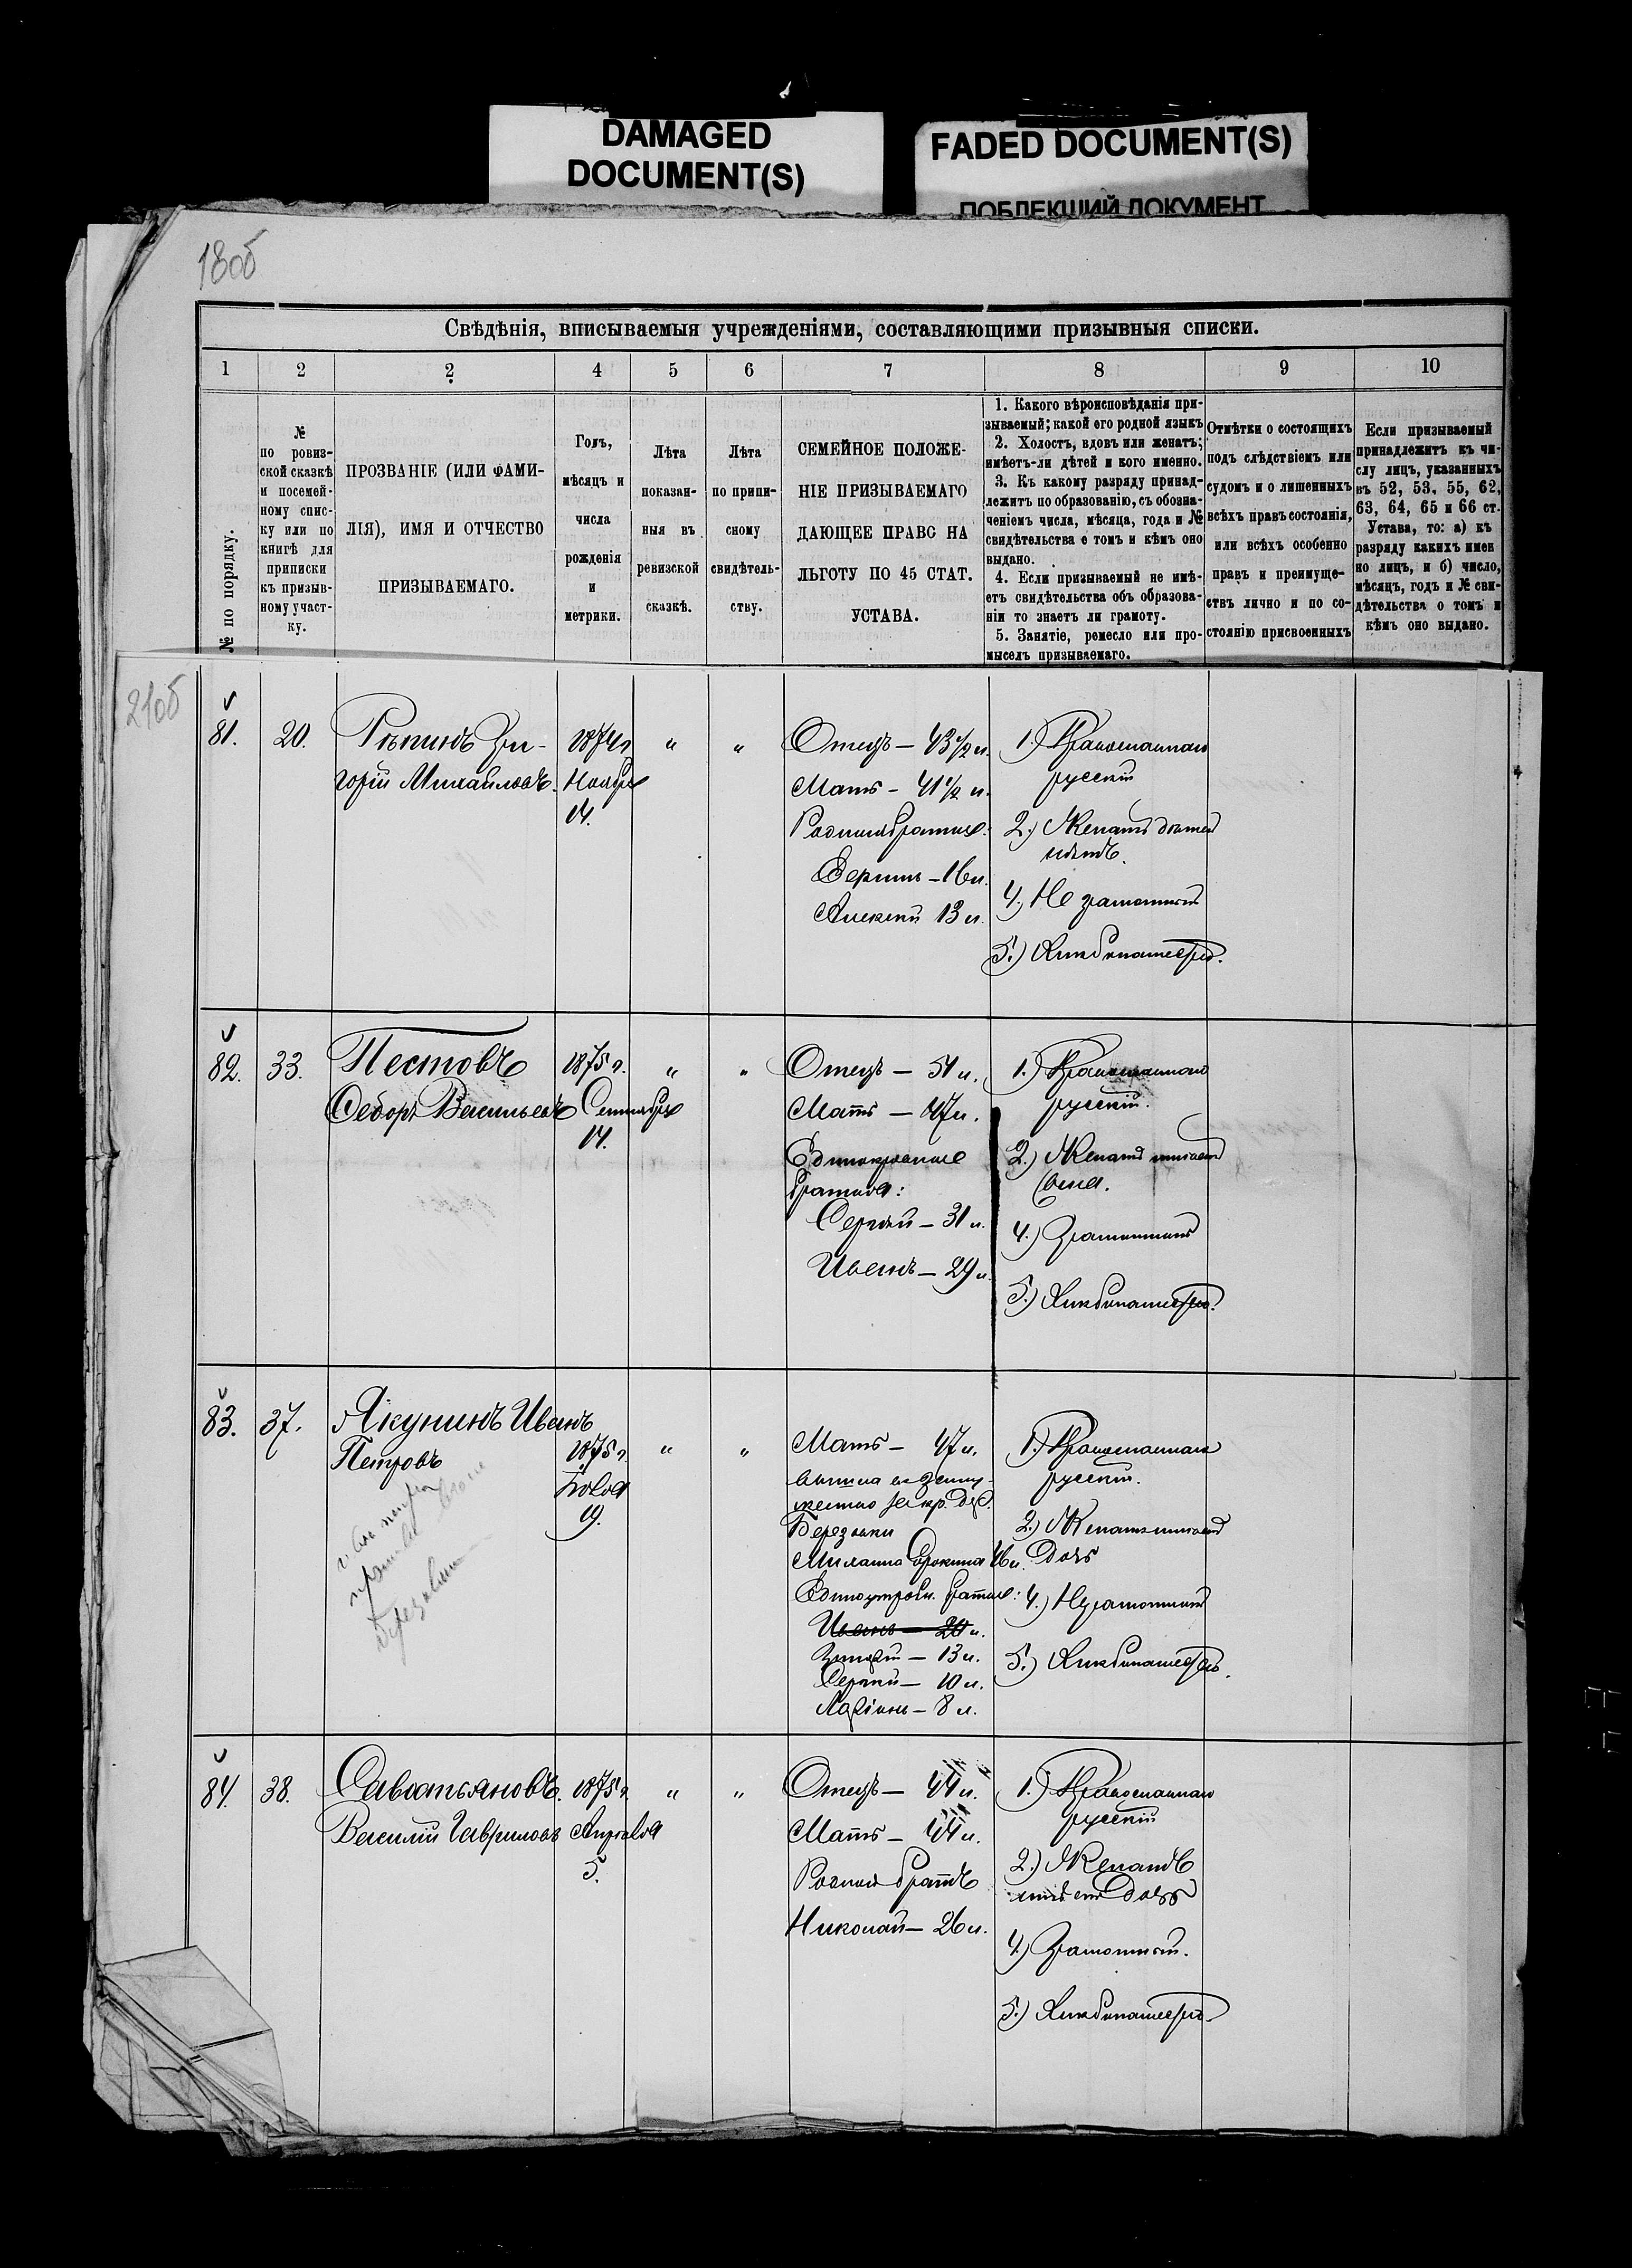 DAMAGED
DOCUMENT(S)
FADED DOCUMENT(S)
ПОБЛЕКШИЙ ДОКУМЕНТ
18об
Свѣдѣнія, вписываемыя учрежденіями, составляющими призывныя списки.
1 2 2 4 5 6 7 8 9 10
№ по порядку.
№
по ровиз-
ской сказкѣ
и посемей-
ному спис-
ку или по
книгѣ для
приписки
къ призыв-
ному участ-
ку.
ПРОЗВАНІЕ (ИЛИ ФАМИ-
ЛІЯ), ИМЯ И ОТЧЕСТВО
ПРИЗЫВАЕМАГО.
Годъ,
мѣсяцъ и
числа
рожденія
и
метрики.
Лѣта
показан-
ныя въ
ревизской
сказкѣ.
Лѣта
по припи-
сному
свидѣтель-
ству.
СЕМЕЙНОЕ ПОЛОЖЕ-
НІЕ ПРИЗЫВАЕМАГО
ДАЮЩЕЕ ПРАВО НА
ЛЬГОТУ ПО 45 СТАТ.
УСТАВА.
1. Какого вѣроисповѣданія при-
зываемый; какой его родной языкъ
2. Холостъ, вдовъ или женатъ;
имѣетъ-ли дѣтей и кого именно.
3. Къ какому разряду принад-
лежитъ по образованію, съ обозна-
ченіемъ числа, мѣсяца, года и №
свидѣтельства о томъ и кѣмъ оно
выдано.
4. Если призываемый не имѣ-
етъ свидѣтельства объ образова-
ніи то знаетъ ли грамоту.
5. Занятіе, ремесло или про-
мыселъ призываемаго.
Отмѣтки о состоящихъ
подъ слѣдствіемъ или
судомъ и о лишенныхъ
всѣхъ правъ состоянія,
или всѣхъ особенно
правъ и преимуще-
ствъ лично и по со-
стоянію присвоенныхъ
Если призываемый
принадлежитъ къ чи-
слу лицъ, указанныхъ
въ 52, 53, 55, 62,
63, 64, 65 и 66 ст.
Устава, то: а) къ
разряду какихъ имен
но лицъ, и б) число,
мѣсяцъ, годъ и № сви-
дѣтельства о томъ и
кѣмъ оно выдано.
21об
81.
20.
Рѣпинъ Гри-
горій Михайловъ.
1874 г
Ноября
14.
"
"
Отецъ — 43 1/2 л.
Мать - 41 1/2 л.
Родные братья:
Сергѣй — 16 л.
Алексѣй 13 л.
1.) Православнаго
русскій
2.) Женатъ дѣтей
нѣтъ.
4.) Не грамотный
5.) Хлѣбопашество.
82.
33.
Пестовъ
Ѳедоръ Васильевъ
1875 г.
Сентября
14.
"
"
Отецъ — 51 л.
Мать — 47 л.
Единокровные
братья:
Сергѣй — 31 л.
Иванъ — 29 л.
1.) Православнаго
русскій.
2.) Женатъ имѣетъ
сына.
4.) Грамотный
5.) Хлѣбопашество.
83.
37.
Якунинъ Иванъ
Петровъ
1875 г.
Іюля
9.
"
"
Мать — 47 л.
вышла въ заму-
жество за кр. дер.
Березовки
46 л.
Единоутробн. братья:
Иванъ — 20 л.
Григорій — 13 л.
Сергѣй — 10 л.
Ларіонъ — 8 л.
1.) Православнаго
русскій.
2.) Женатъ имѣетъ
дочь
4.) Неграмотный
5.) Хлѣбопашество.
84.
38.
Саватьяновъ.
Василій Гавриловъ
1875 г
Апрѣля
5.
"
"
Отецъ — 44 л.
Мать — 44 л.
Родной братъ
Николай — 26 л.
1.) Православнаго
русскій
2.) Женатъ
имѣетъ дочь
4.) Грамотный.
5.) Хлѣбопашество.